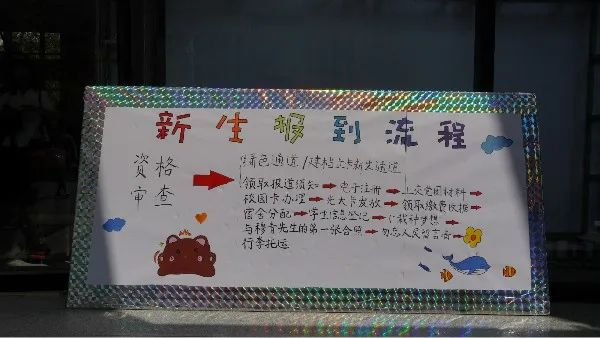 新生报到流程
资格
审查
绿色通道/建档立卡新生通道
领取报道须知 电子注册 上交党团材料
校园卡办理 光大卡发放 领取缴费收据
宿舍分配 学生信息登记 栽种梦想
与穆青先生的第一张合照 勿忘人民留言
行李托运